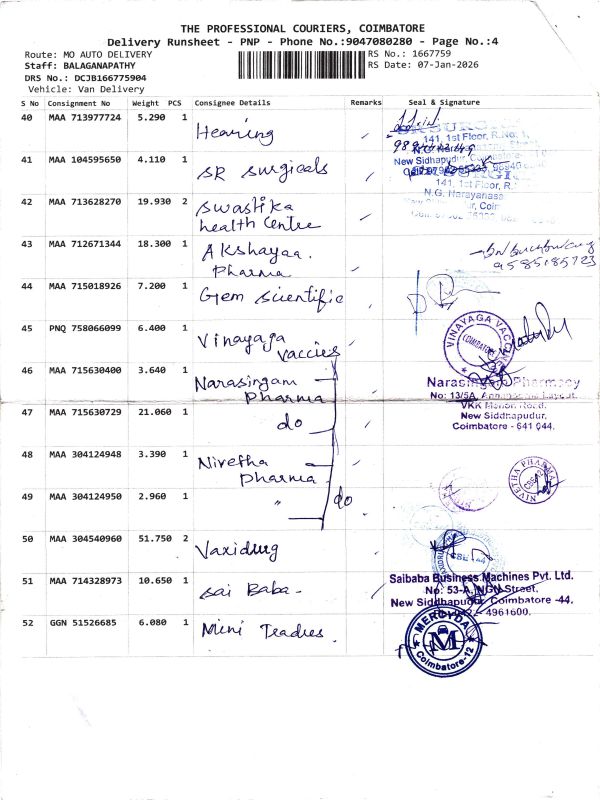 THE PROFESSIONAL COURIERS, COIMBATORE
Delivery Runsheet - PNP - Phone No.:9047080280 - Page No.:4
Route: MO AUTO DELIVERY
RS No.: 1667759
Staff: BALAGANAPATHY
RS Date: 07-Jan-2026
DRS No.: DCJB166775904
Vehicle: Van Delivery
S No Consignment No Weight PCS Consignee Details Remarks Seal & Signature
40 MAA 713977724 5.290 1 Hearing
141, 1st Floor, R.No: 1,
New Sidhapudur, Coimbatore-
41 MAA 104595650 4.110 1 SR Surgicals
141, 1st Floor, R.
N.G. Narayanasa
42 MAA 713628270 19.930 2 Swastika
health Centre
43 MAA 712671344 18.300 1 Akshayaa.
Pharma
9585185723
44 MAA 715018926 7.200 1 Gem Scientific
45 PNQ 758066099 6.400 1 Vinayaga
Vaccies
VINAYAGA VACCINE
COIMBATORE
46 MAA 715630400 3.640 1 Narasingam
Pharma
Narasinga Pharmacy
No: 13/5A,
VKK Menon Road,
New Siddhapudur,
Coimbatore - 641 044.
47 MAA 715630729 21.060 1 do
48 MAA 304124948 3.390 1 Nivetha
Pharma
NIVETHA PHARMA
49 MAA 304124950 2.960 1 " do
50 MAA 304540960 51.750 2 Vaxidrug
51 MAA 714328973 10.650 1 Sai Baba -
Saibaba Business Machines Pvt. Ltd.
No: 53-A, NGN Street,
New Siddhapudur, Coimbatore -44.
4961600.
52 GGN 51526685 6.080 1 Mini Teadres
MERCYDA
M
Coimbatore-12